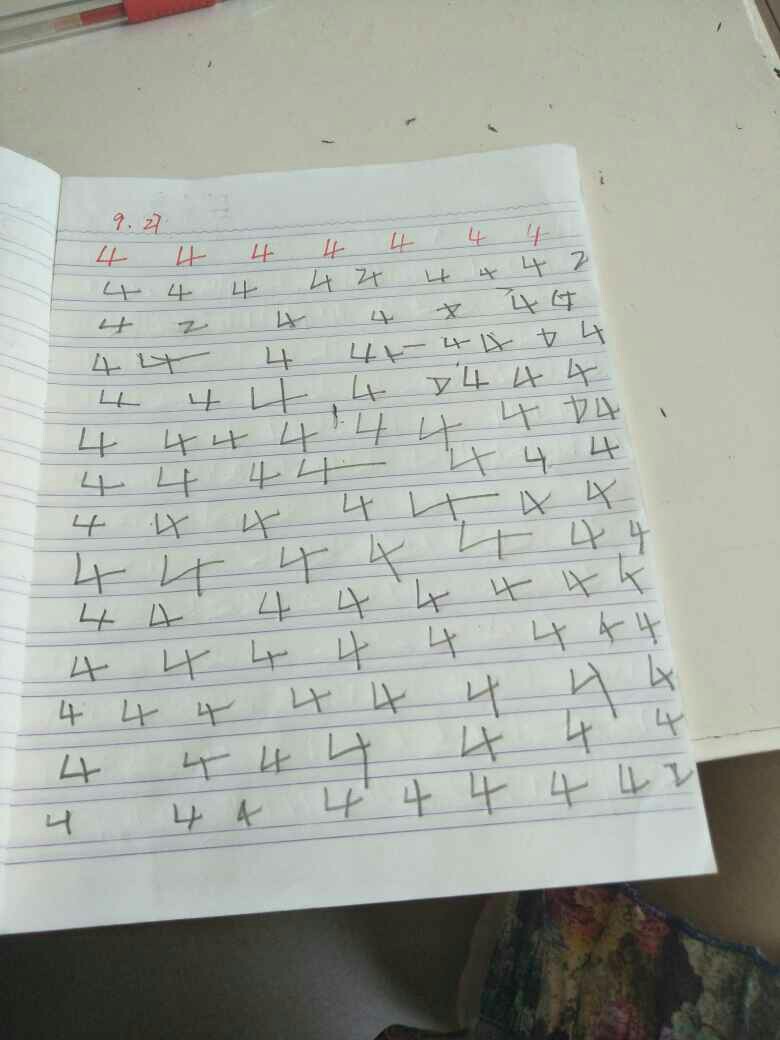 9.27
4 4 4 4 4 4 4
4 4 4 4 4 4 4 2
4 2 4 4 4 4
4 4 4 4 4 4 4
4 4 4 4 4 4 4
4 4 4 4 4 4 4 4
4 4 4 4 4 4 4
4 4 4 4 4 4 4
4 4 4 4 4 4 4
4 4 4 4 4 4 4 4
4 4 4 4 4 4 4 4
4 4 4 4 4 4 4 4
4 4 4 4 4 4 4
4 4 4 4 4 4 4 4 2